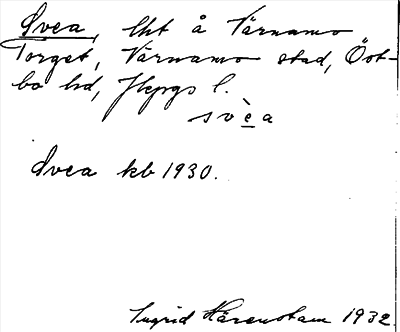 Svea, lht å Värnamo
Torget, Värnamo stad, Öst-
bo hd, Jkpgs l.
svèa
Svea kb 1930.
Ingrid Härenstam 1932.